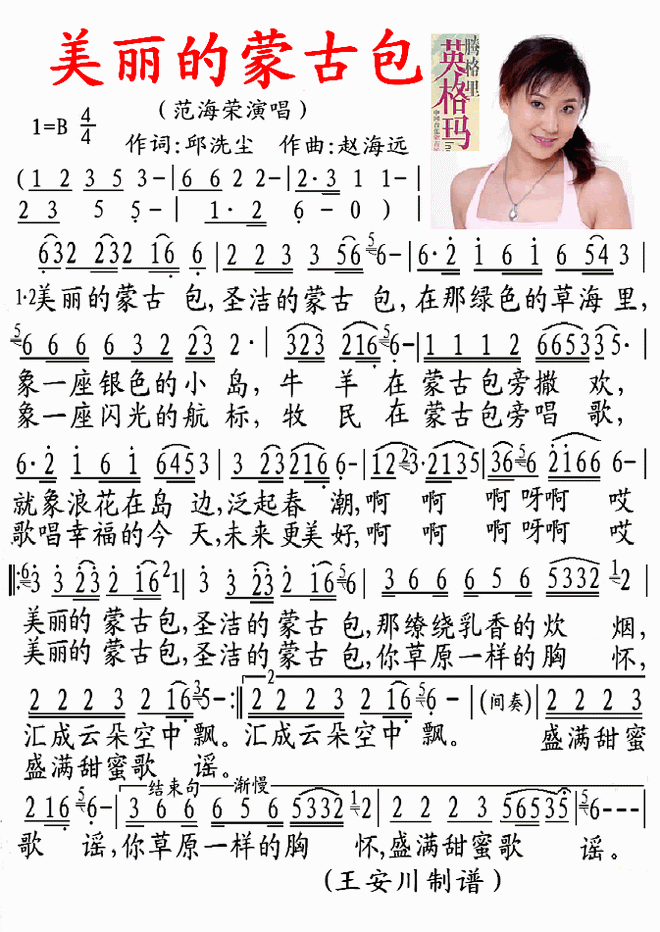 美丽的蒙古包
腾格里
英格玛
(范海荣演唱)
1=B 4/4
作词:邱洗尘 作曲:赵海远
(1 2 3 5 3-|6 6 2 2-|2·3 1 1-|
2 3 5 5-|1·2 6-0)|
632 232 16 6|2 2 3 3 56 5 6-|6·2 1 6 1 6 54 3|
1·2美丽的蒙古 包,圣洁的蒙古 包,在那绿色的草海 里,
5 6 6 6 6 3 2 23 2·|323 216 5 6-|1 1 1 2 6653 35·|
象一座银色的小 岛, 牛 羊 在 蒙古包旁撒 欢,
象一座闪光的航 标, 牧 民 在 蒙古包旁唱 歌,
6·2 1 6 1 6453|3 23216 6-|12 2 3·2135|36 5 6 2166 6-|
就象浪花在岛 边,泛起春 潮,啊 啊 啊 呀啊 哎
歌唱幸福的今 天,未来更美好,啊 啊 啊 呀啊 哎
‖:6 3 3 23 2 16 2 1|3 3 23 2·16 5 6|3 6 6 6 5 6 5332 1 2|
美丽的 蒙古包,圣洁的 蒙古 包,那缭绕乳香的炊 烟,
美丽的 蒙古包,圣洁的 蒙古 包,你草原一样的胸 怀,
2 2 2 3 2 16 3 5-:‖2 2 2 2 3 2 16 5 6-|(间奏)|2 2 2 3
汇成云朵空中 飘。汇成云朵空中 飘。 盛满甜蜜
盛满甜蜜歌 谣。
结束句 渐慢
2 16 5 6-|3 6 6 6 5 6 5332 1 2|2 2 2 3 56535|5 6---|
歌 谣,你草原一样的胸 怀,盛满甜蜜歌 谣。
(王安川制谱)